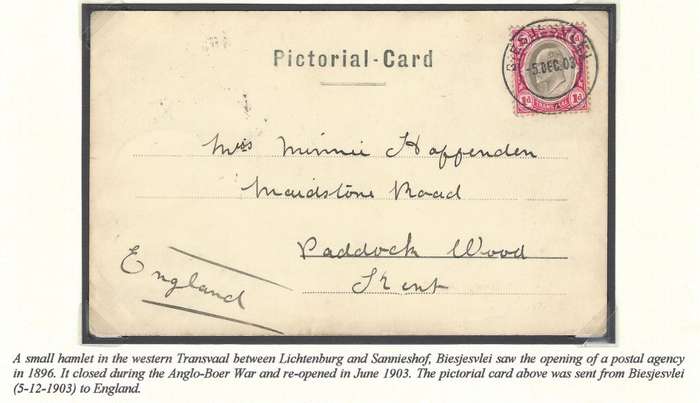 Pictorial-Card
BIESJESVLEI
-5.DEC.03
1d TRANSVAAL 1d
Miss Minnie Hoffenden
Maidstone Road
Paddock Wood
Kent
England
A small hamlet in the western Transvaal between Lichtenburg and Sannieshof, Biesjesvlei saw the opening of a postal agency
in 1896. It closed during the Anglo-Boer War and re-opened in June 1903. The pictorial card above was sent from Biesjesvlei
(5-12-1903) to England.